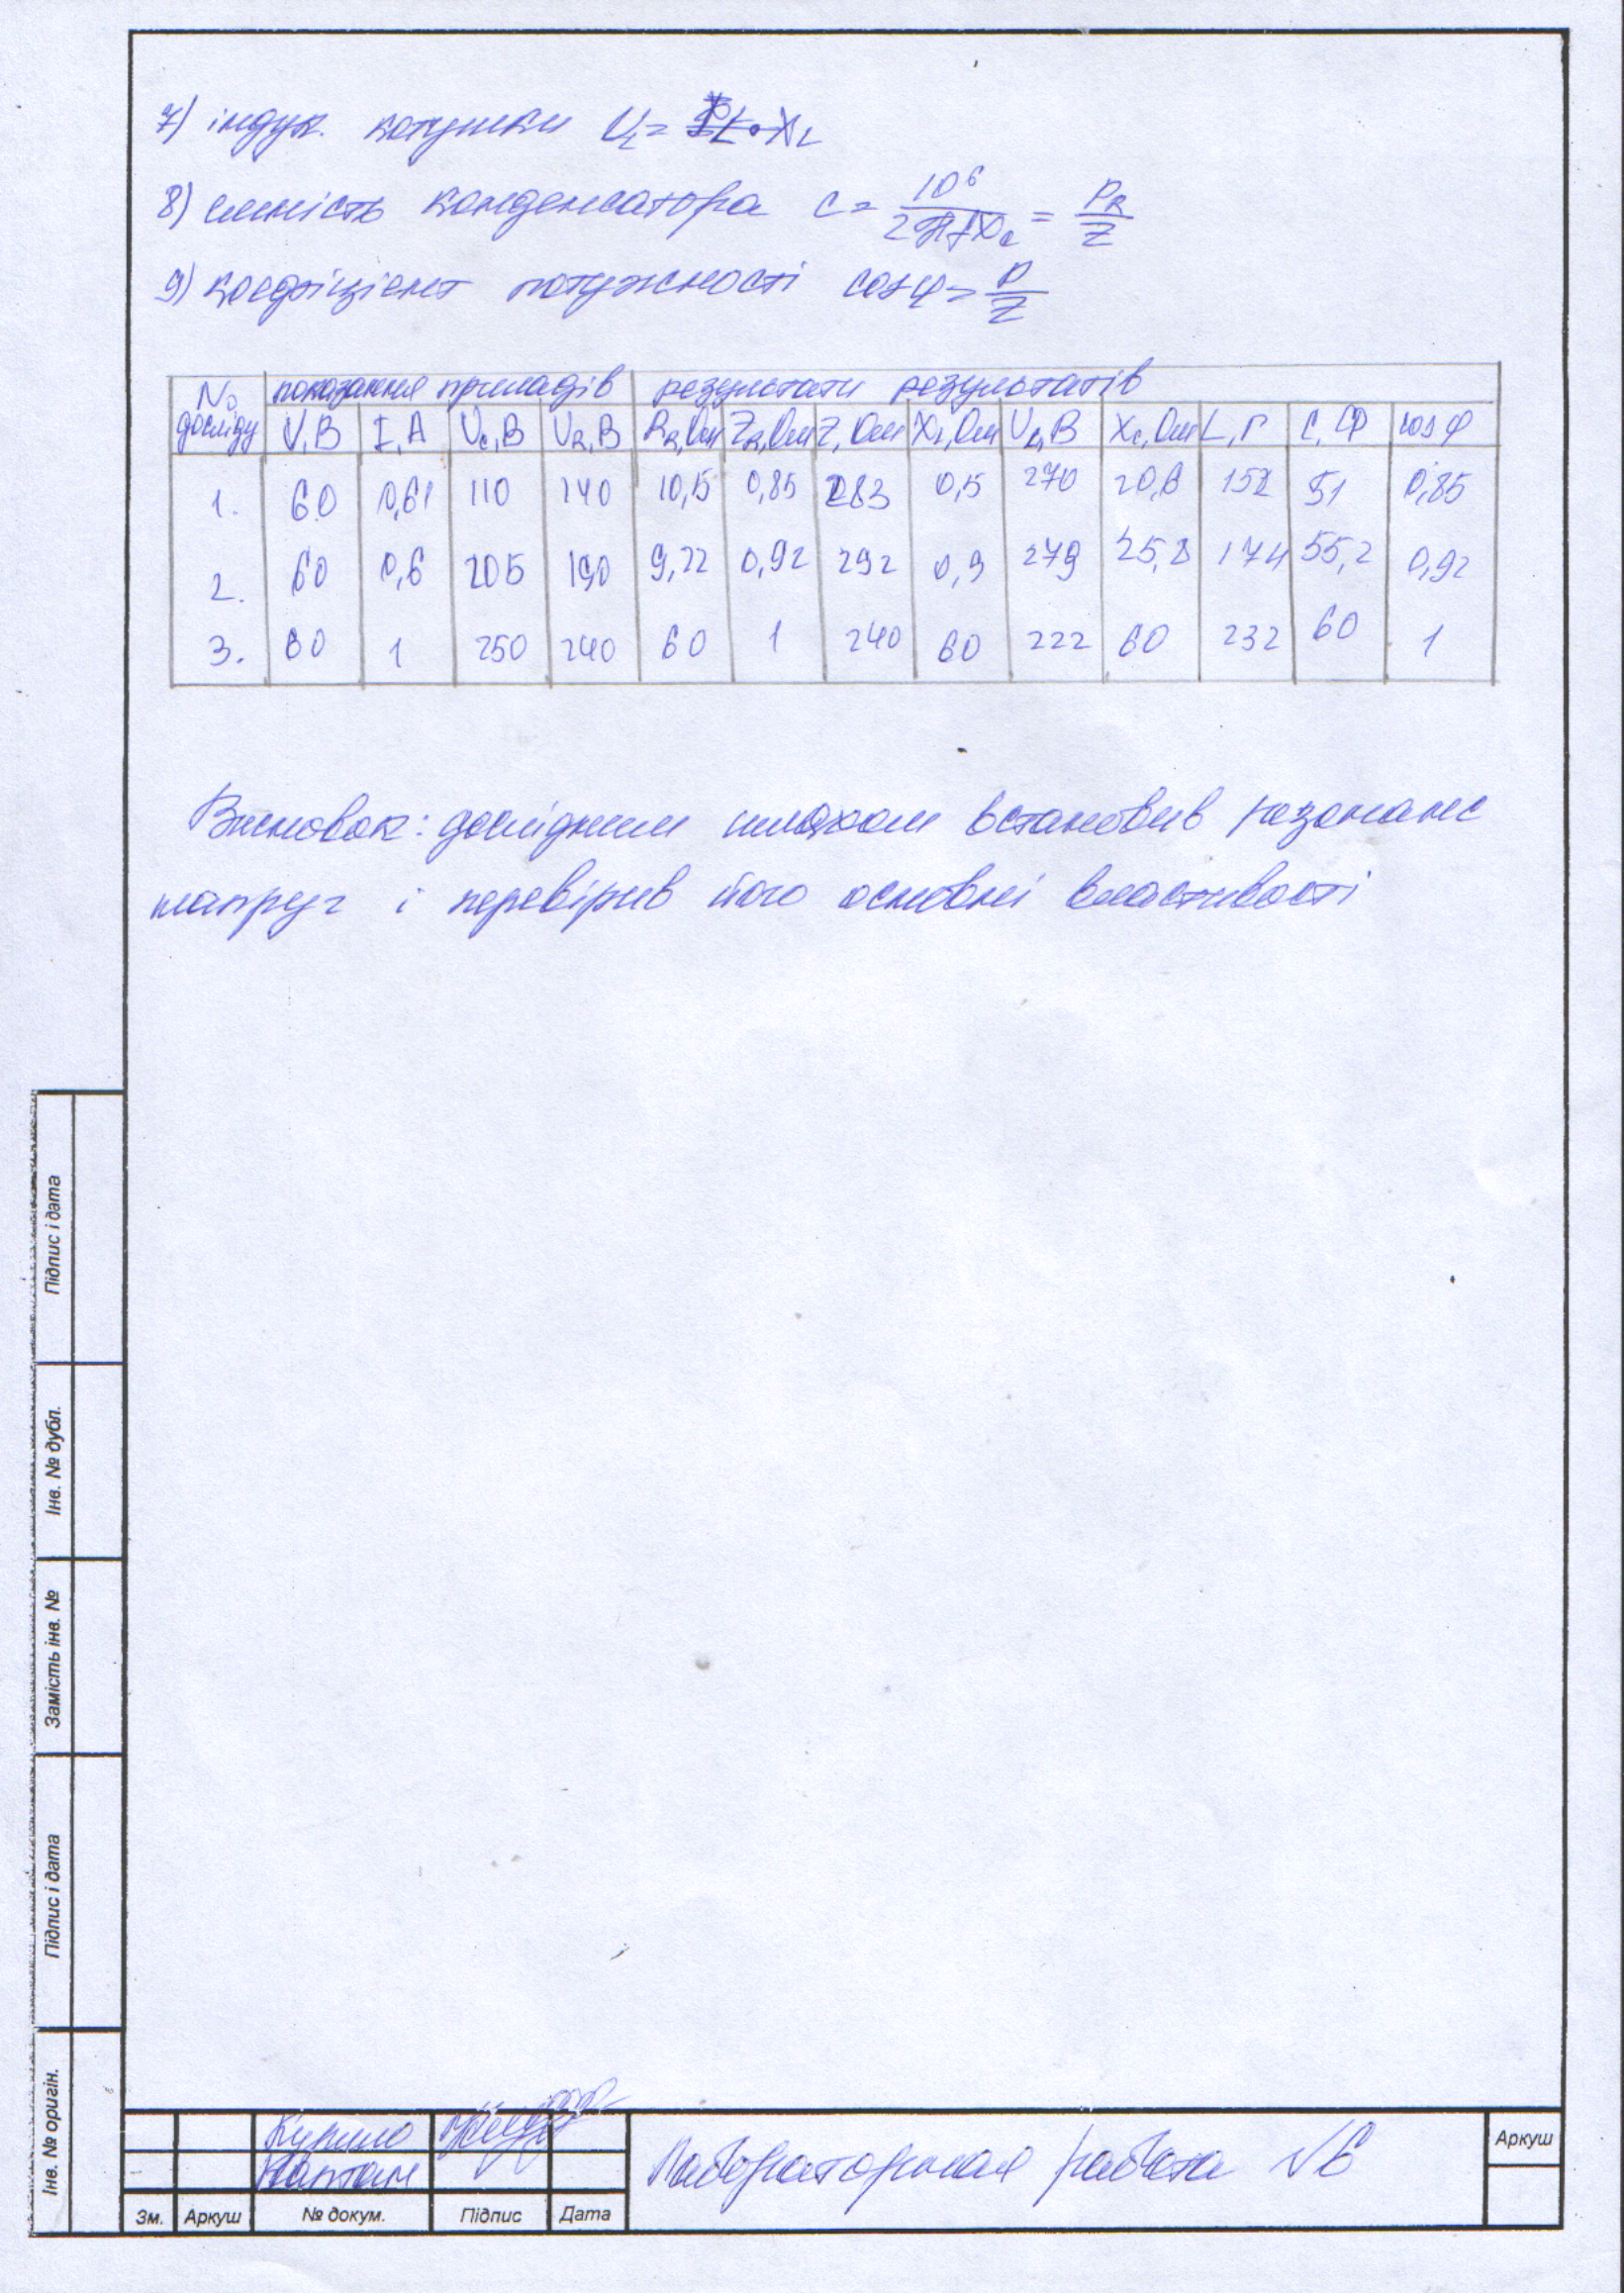 7) індук. котушки U_L = I · X_L
8) ємність конденсатора C = 10⁶ / 2πfX_c = P_R / Z
9) коефіцієнт потужності cos φ = P / Z
№ досліду | показання приладів | результати результатів
U, В | I, А | U_c, В | U_R, В | R_R, Ом | Z_R, Ом | Z, Ом | X_L, Ом | U_L, В | X_c, Ом | L, Г | C, Ф | cos φ
1. | 60 | 0,61 | 110 | 140 | 10,15 | 0,85 | 283 | 0,15 | 270 | 20,6 | 152 | 51 | 0,85
2. | 60 | 0,6 | 205 | 190 | 9,22 | 0,92 | 292 | 0,9 | 279 | 25,8 | 174 | 55,2 | 0,92
3. | 60 | 1 | 250 | 240 | 60 | 1 | 240 | 60 | 222 | 60 | 232 | 60 | 1
Висновок: дослідним шляхом встановив резонанс
напруг і перевірив його основні властивості
Підпис і дата
Інв. № дубл.
Замість інв. №
Підпис і дата
Інв. № оригін.
Лабораторная работа №6
Аркуш
Зм. Аркуш № докум. Підпис Дата